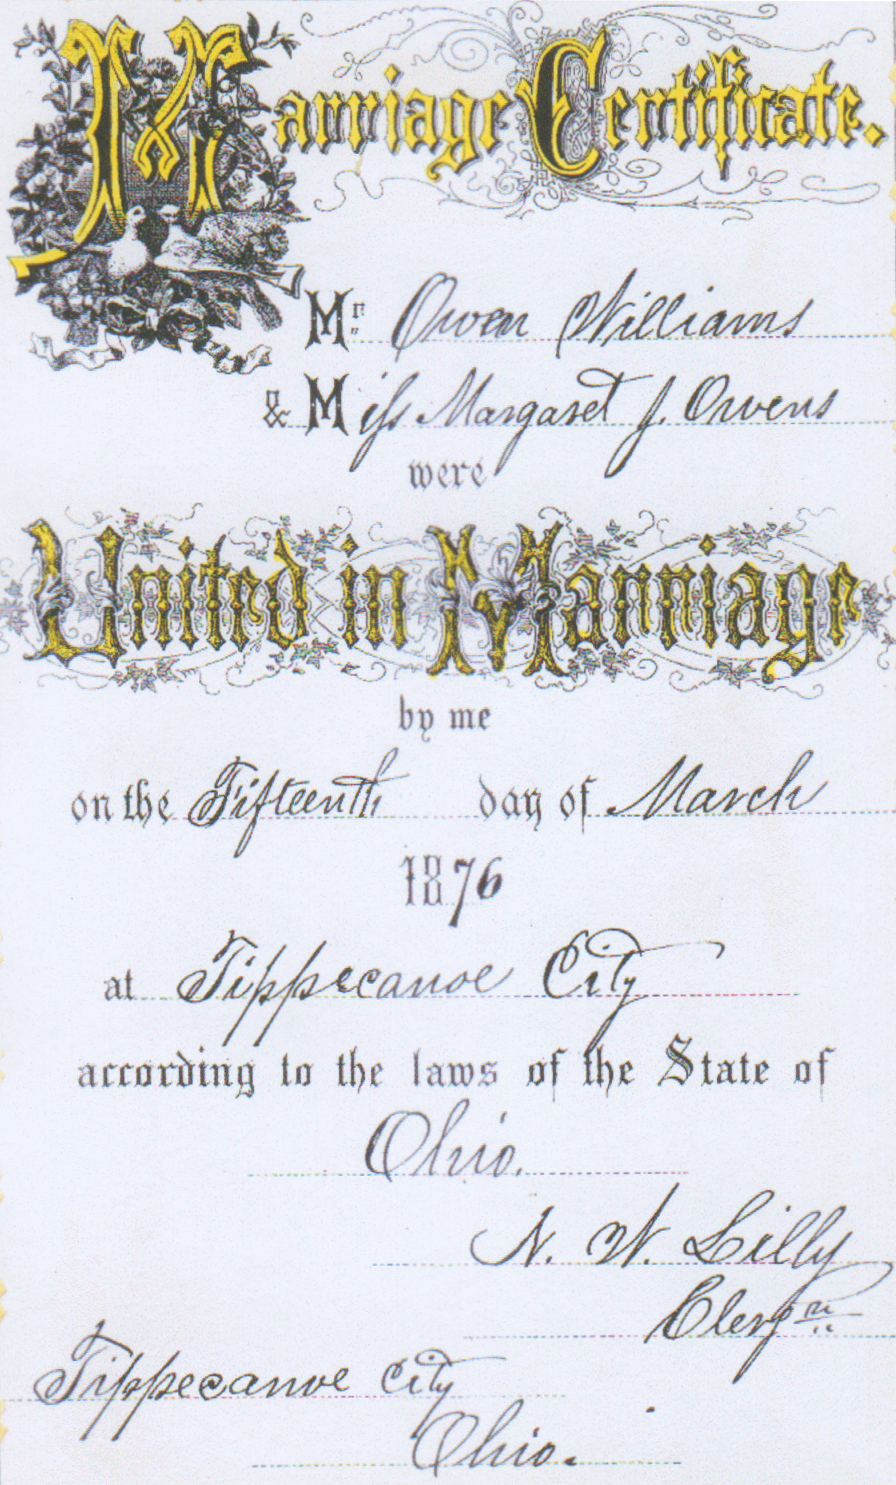 Marriage Certificate.
Mr. Owen Williams
& Miss Margaret J. Owens
were
United in Marriage
by me
on the Fifteenth day of March
1876
at Tippecanoe City
according to the laws of the State of
Ohio.
N. W. Lilly
Clergn
Tippecanoe City
Ohio.